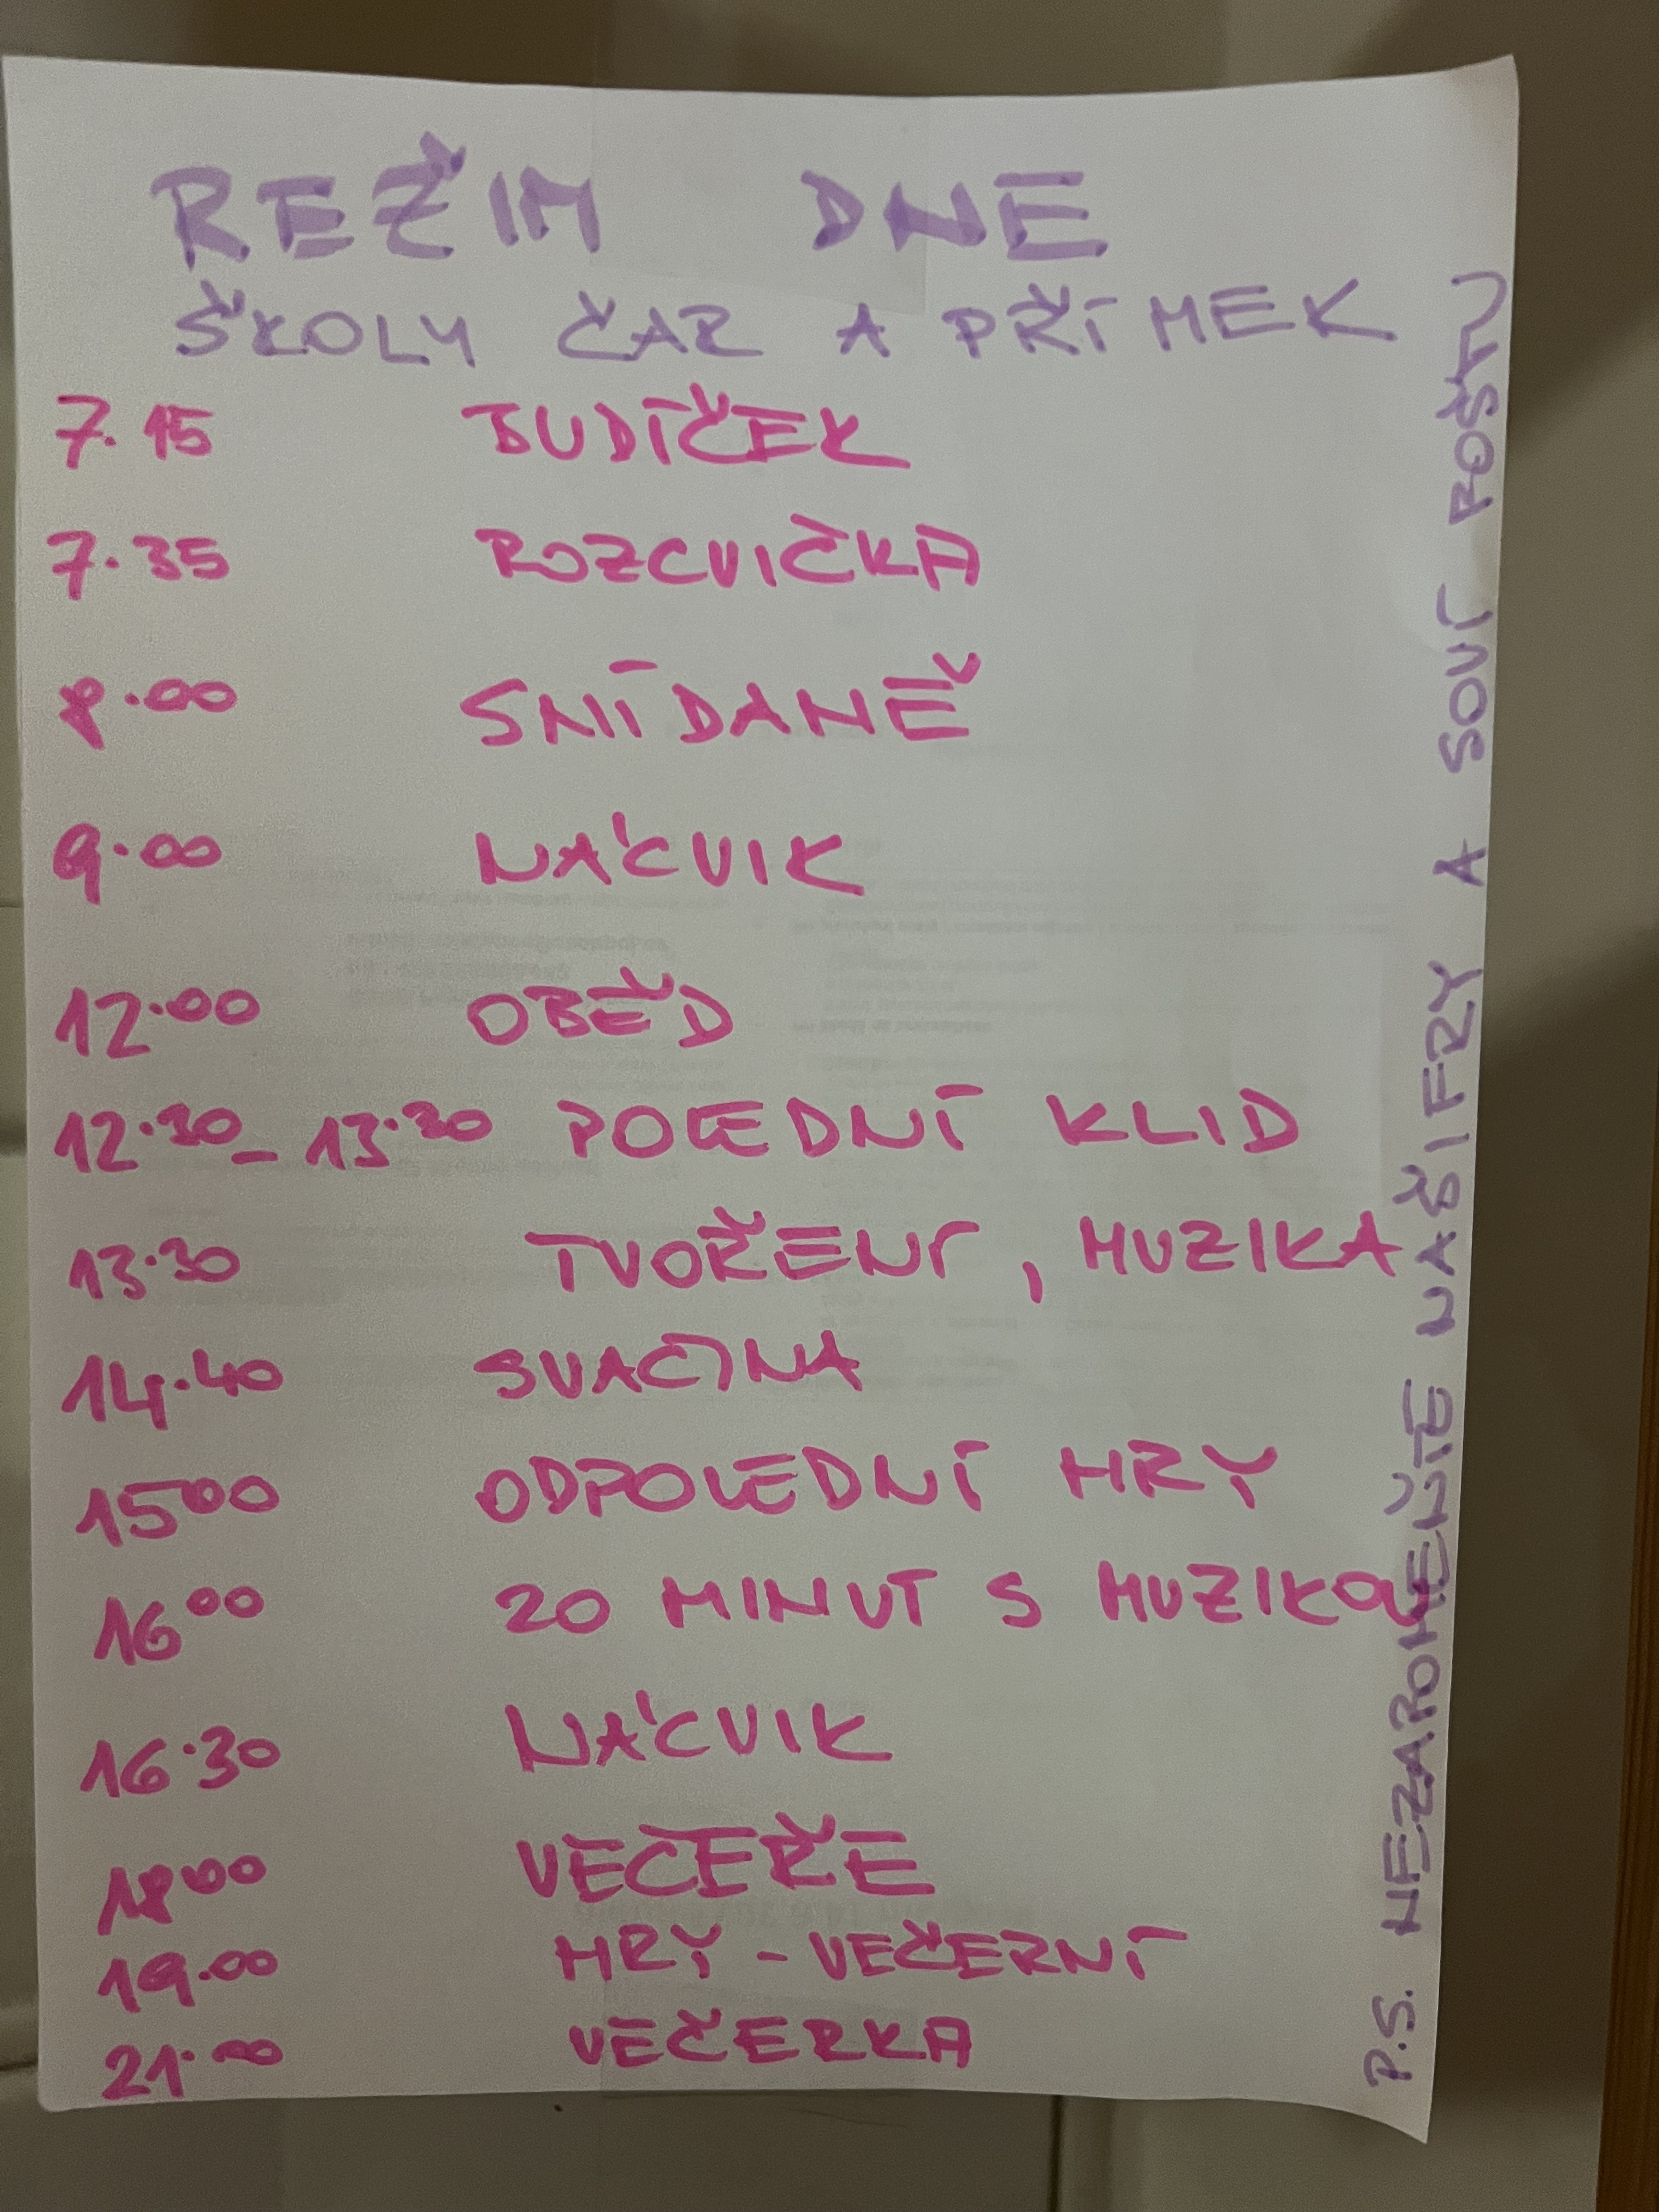 REŽIM DNE
ŠKOLY ČAR A PŘÍMEK
7.15 BUDÍČEK
7.35 ROZCVIČKA
8.00 SNÍDANĚ
9.00 NÁCVIK
12.00 OBĚD
12.30 – 13.30 POLEDNÍ KLID
13.30 TVOŘENÍ, MUZIKA
14.40 SVAČINA
15 00 ODPOLEDNÍ HRY
16 00 20 MINUT S MUZIKOU
16.30 NÁCVIK
18 00 VEČEŘE
19.00 HRY - VEČERNÍ
21.00 VEČERKA
P.S. NEZAPOMEŇTE NA ŠIFRY A SOVÍ POŠTU